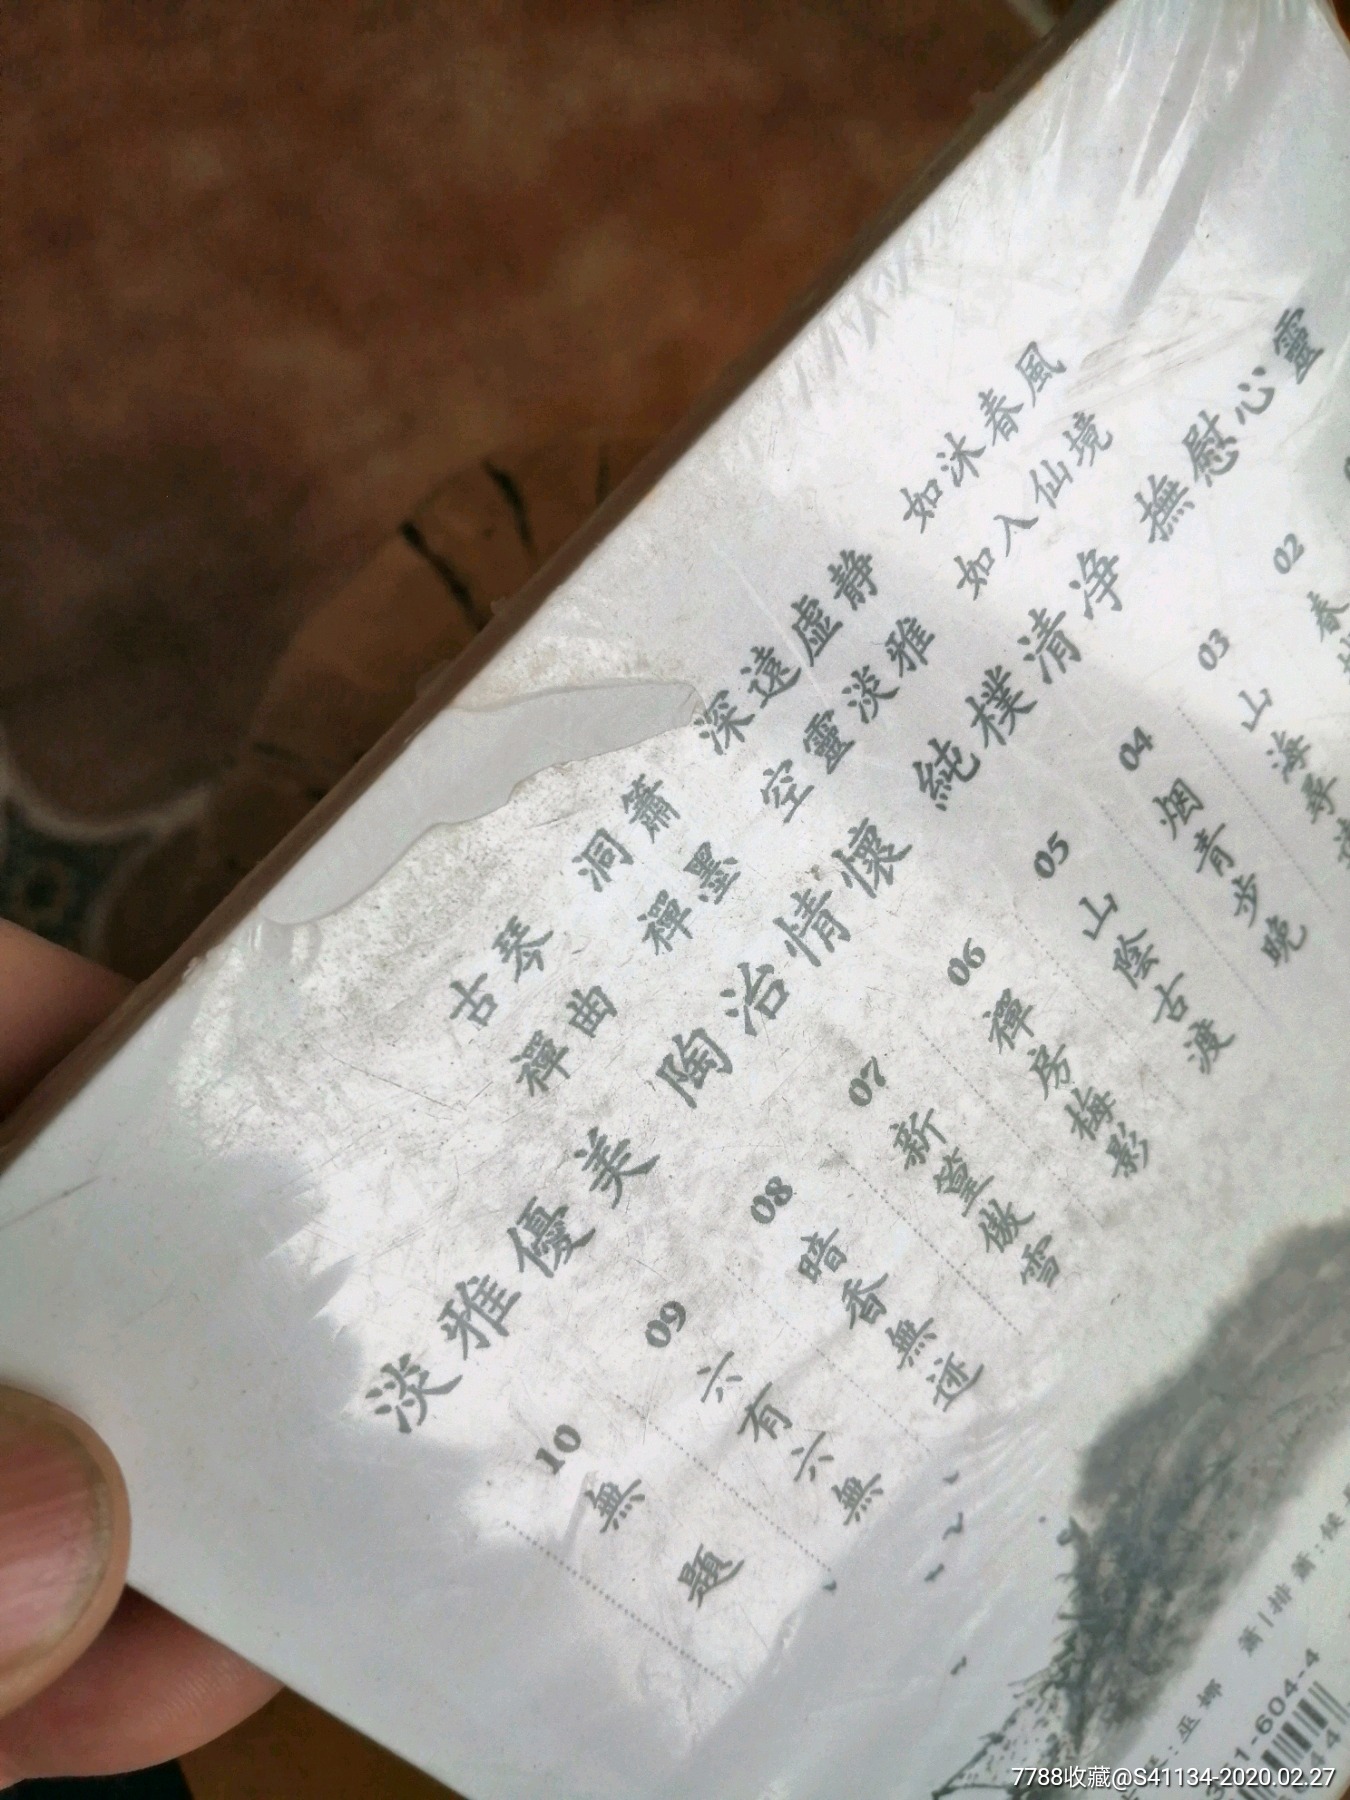 古琴 洞簫 深遠虛靜 如沐春風
禪曲 禪墨 空靈淡雅 如入仙境
淡雅優美 陶冶情懷 純樸清净 撫慰心靈
02 春
03 山海尋
04 烟青步晚
05 山陰古渡
06 禪房梅影
07 新篁傲雪
08 暗香無迹
09 六有六無
10 無題
:巫娜 簫|排簫:侯
1-604-4
7788收藏@S41134-2020.02.27